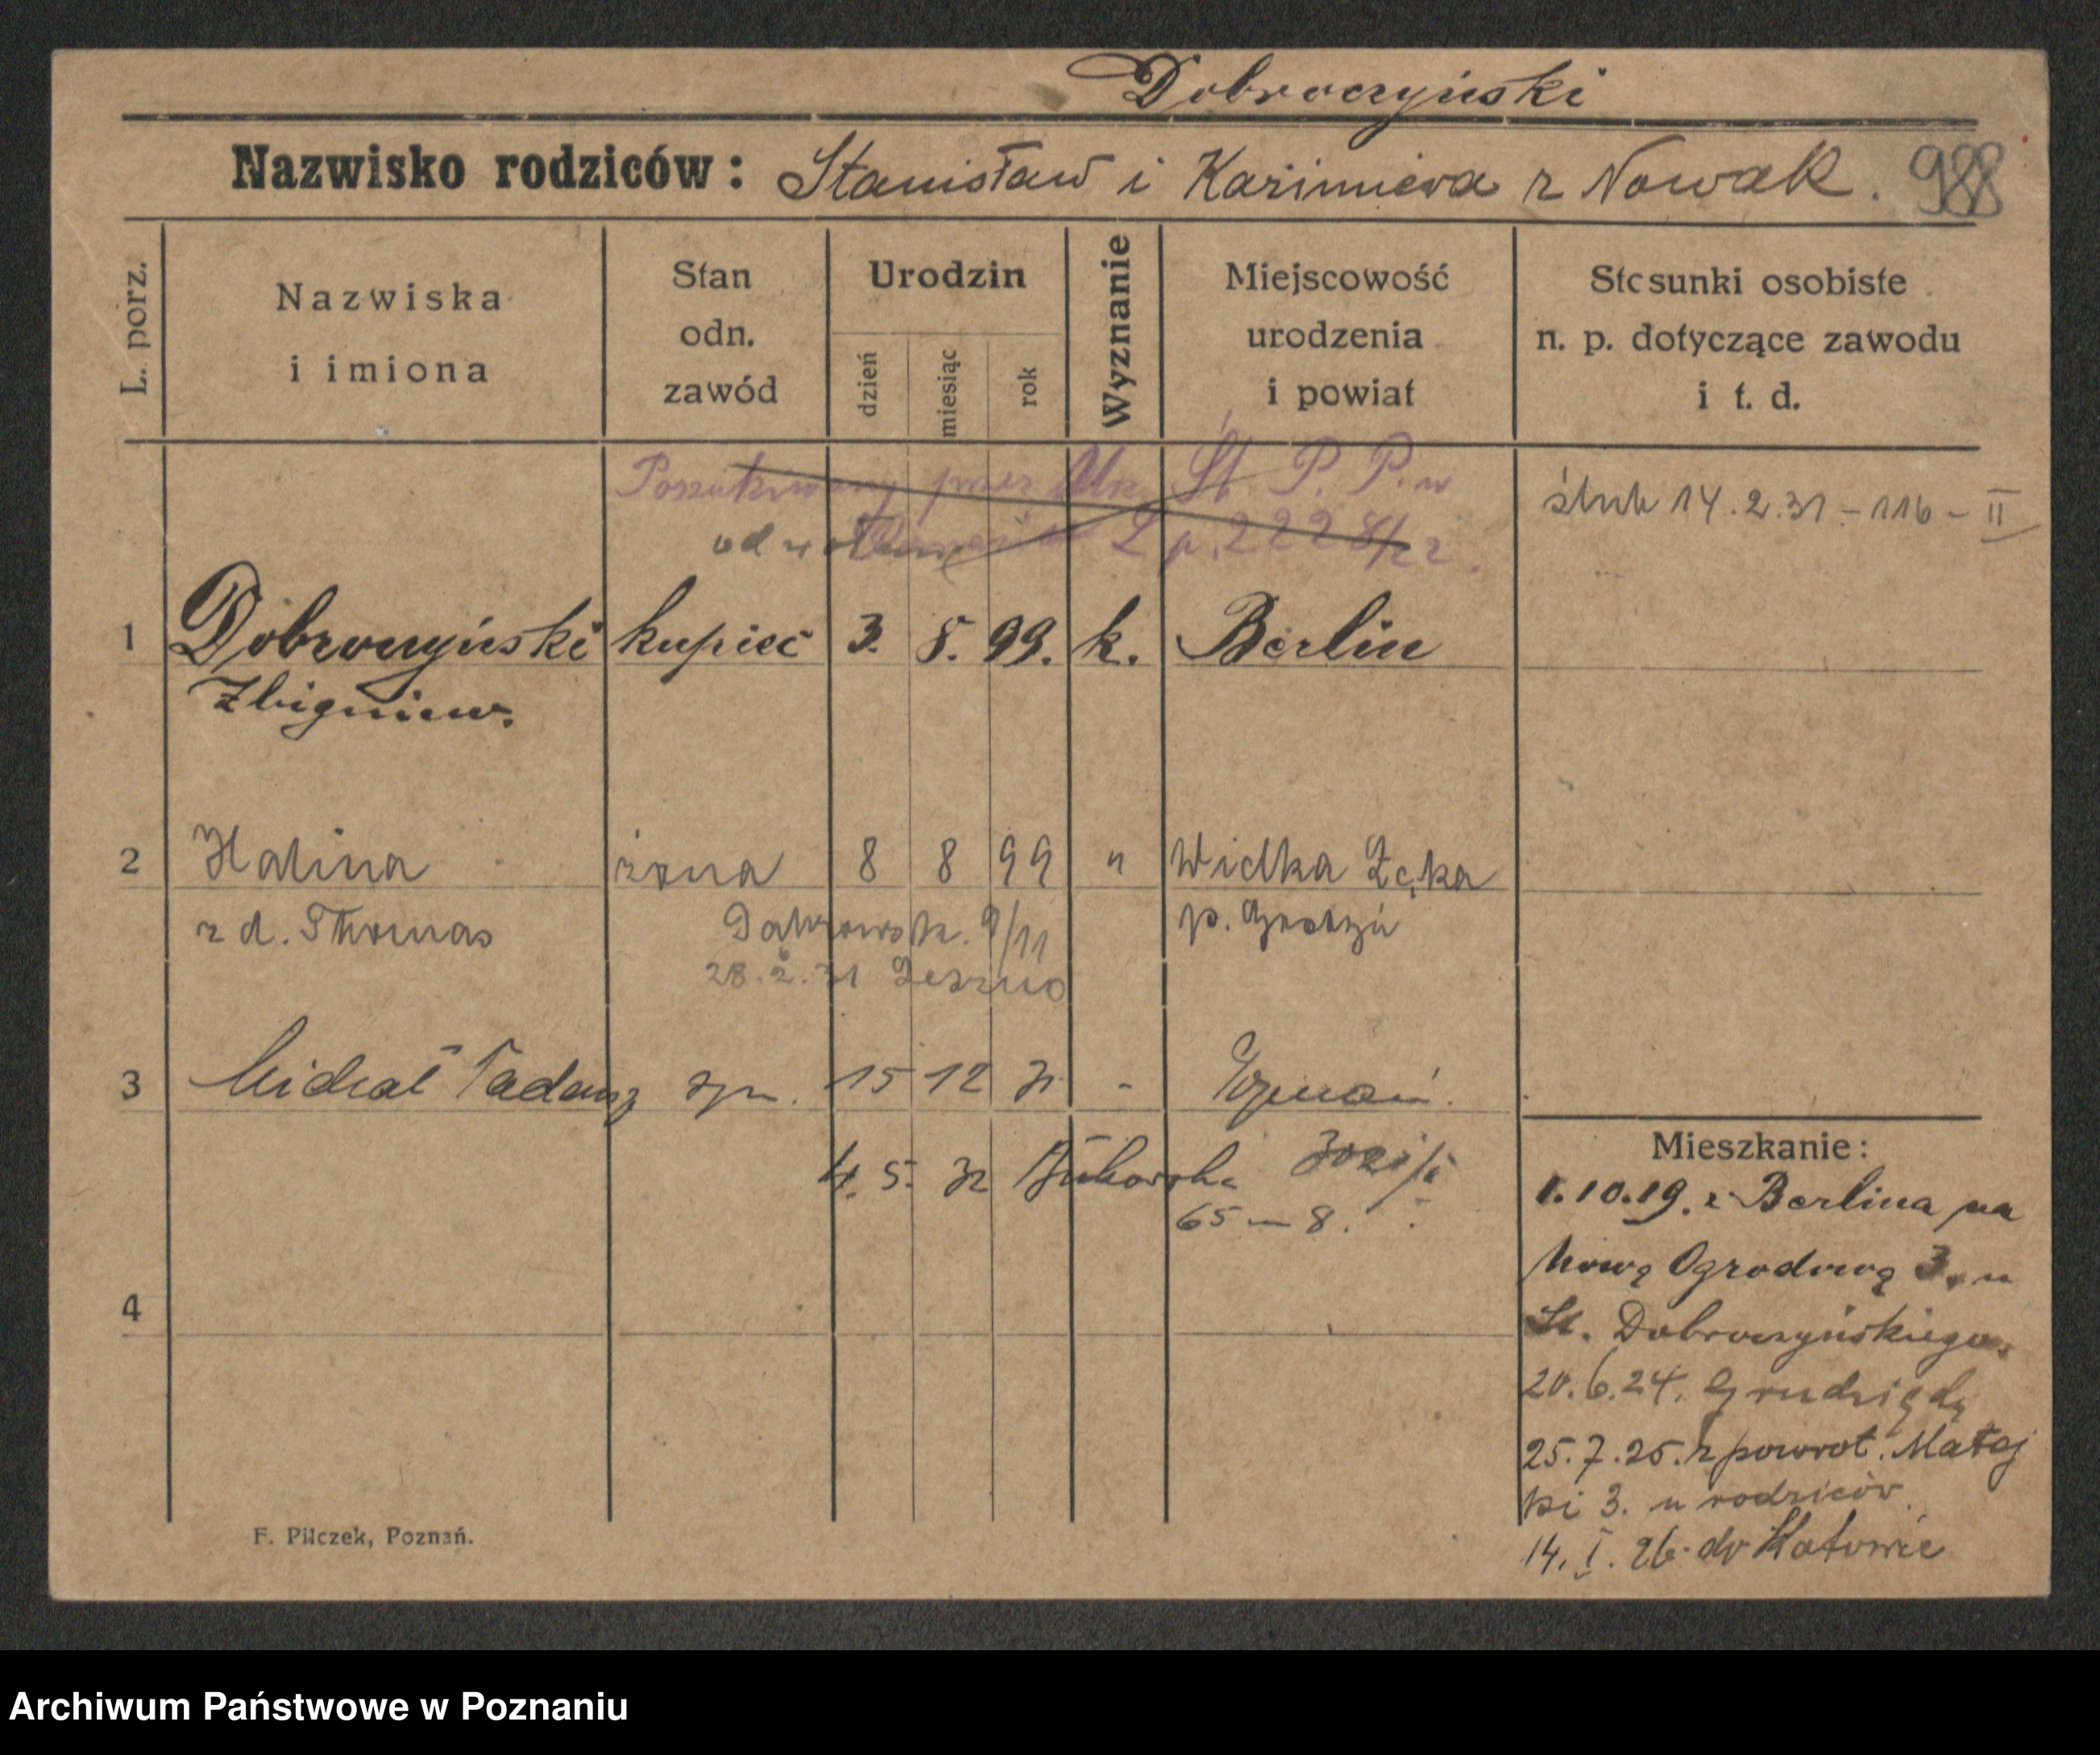 Dobroczyński
Nazwisko rodziców: Stanisław i Kazimiera z Nowak. 988
L. porz.
Nazwiska i imiona
Stan odn. zawód
Urodzin
dzień miesiąc rok
Wyznanie
Miejscowość urodzenia i powiat
Stosunki osobiste n. p. dotyczące zawodu i t. d.
Poszukiwany przez St. P. P. w
L p. 2228/22.
ślub 14.2.31 - 116 - II
1 Dobroczyński kupiec 3. 8. 99. k. Berlin
Zbigniew.
2 Halina żona 8 8 99 " Wielka Łęka
z d. Thomas Dąbrowsk. 9/11 p.
28.2.31 Leszno
3 Michał Tadeusz syn. 15 12 31 - Poznań.
4. 5. 32 Bukowska
65 - 8.
4
Mieszkanie:
1.10.19. z Berlina na
Nową Ogrodową 3. u
St. Dobroczyńskiego.
20.6.24. Grudziądz
25.7.25. z powrot. Matej
ki 3. u rodziców.
14. I. 26. do Katowic
F. Pilczek, Poznań.
Archiwum Państwowe w Poznaniu